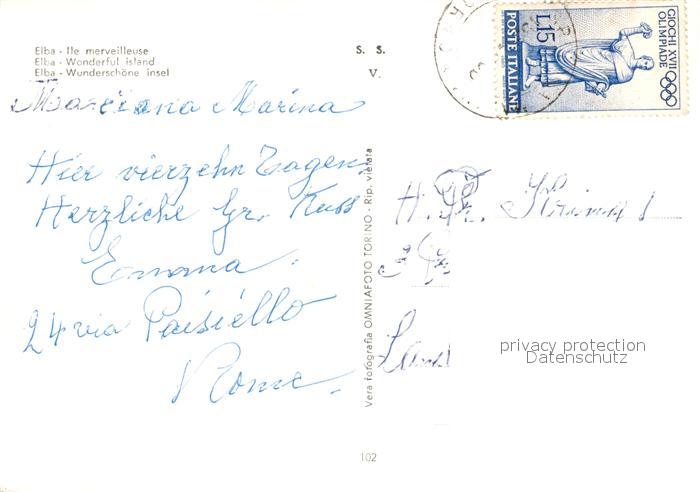 Elba - Ile merveilleuse
Elba - Wonderful island
Elba - Wunderschöne insel
S. S.
V.
GIOCHI XVII
OLIMPIADE
L.15
POSTE ITALIANE
Marciana Marina
Hier vierzehn Tagen.
Herzliche Gr. Kuss
Emma.
24 via Paisiello
Rome.
Vera fotografia OMNIAFOTO TORINO - Rip. vietata
H.
privacy protection
Datenschutz
102